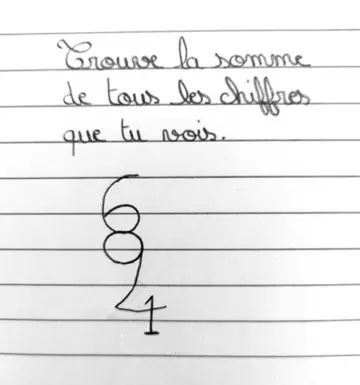 Trouve la somme
de tous les chiffres
que tu vois.
6
9
4